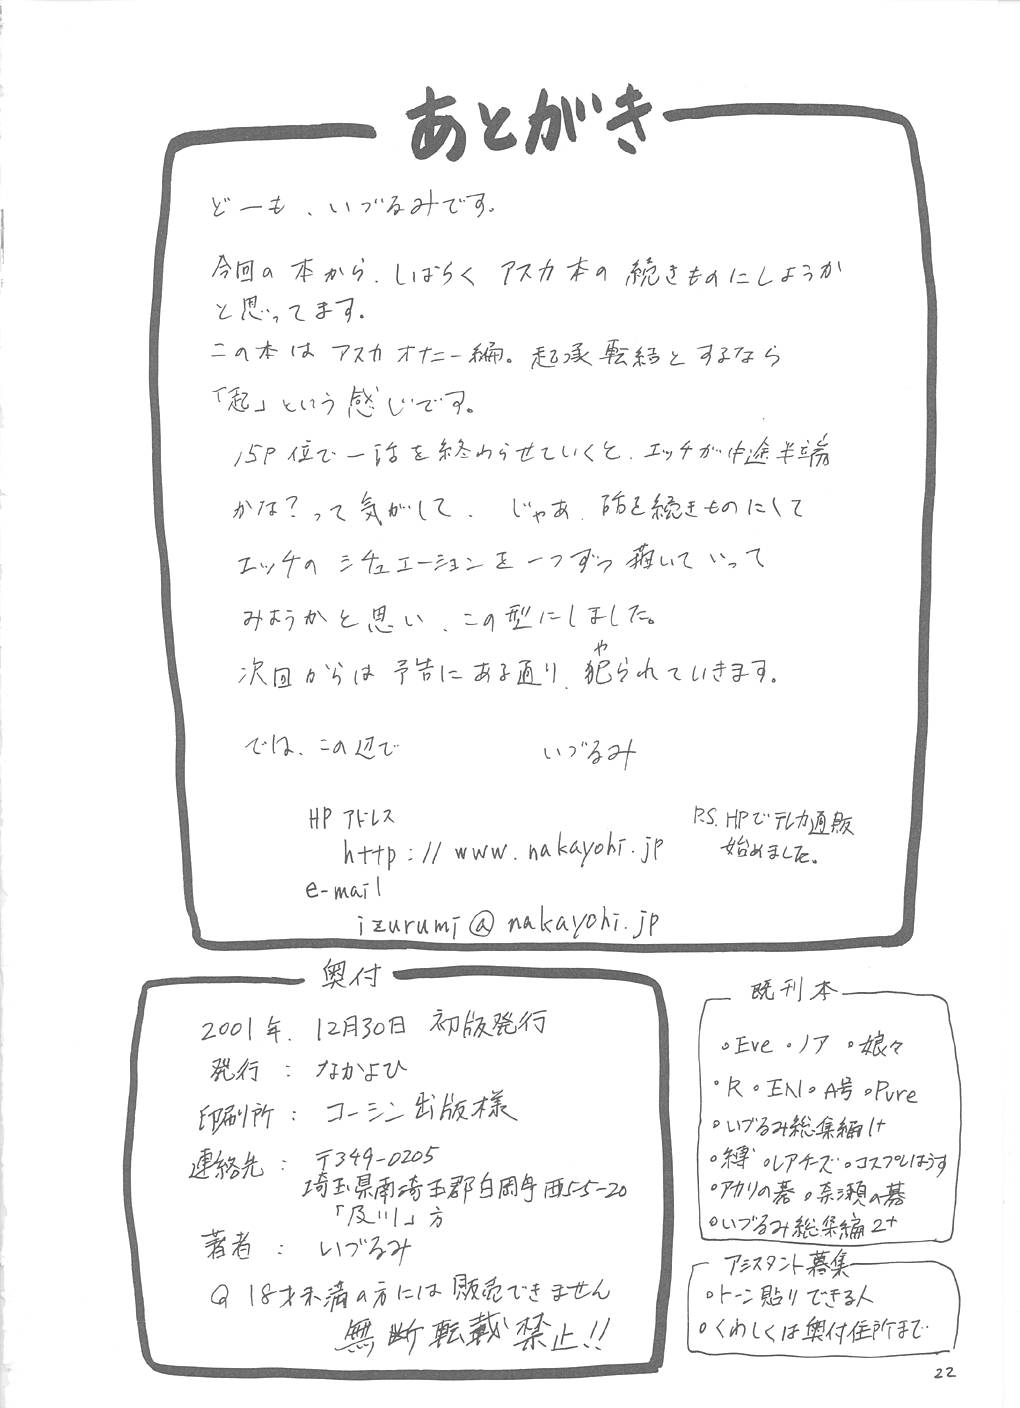 あとがき
どーも、いづるみです。
今回の本から、しばらく アスカ本の続きものにしようか
と思ってます。
この本は アスカオナニー編。起承転結とするなら
「起」という感じです。
15P位で一話を終わらせていくと、エッチが中途半端
かな?って気がして、じゃあ、話を続きものにして
エッチのシチュエーションを一つずつ描いていって
みようかと思い、この型にしました。
次回からは予告にある通り、犯られていきます。
や
では、この辺で いづるみ
HPアドレス
http://www.nakayohi.jp
e-mail
izurumi@nakayohi.jp
P.S. HPでテレカ通販
始めました。
奥付
2001年、12月30日 初版発行
発行 : なかよひ
印刷所 : コーシン出版様
連絡先 : 〒349-0205
埼玉県南埼玉郡白岡町西5-5-20
「及川」方
著者 : いづるみ
18才未満の方には販売できません
無断転載禁止!!
既刊本
○Eve ○ノア ○娘々
○R ○EN1 ○A号 ○Pure
○いづるみ総集編1+
○縛 ○レアチーズ ○コスプレはうす
○アカリの碁 ○奈瀬の碁
○いづるみ総集編2+
アシスタント募集
○トーン貼りできる人
○くわしくは奥付住所まで
22